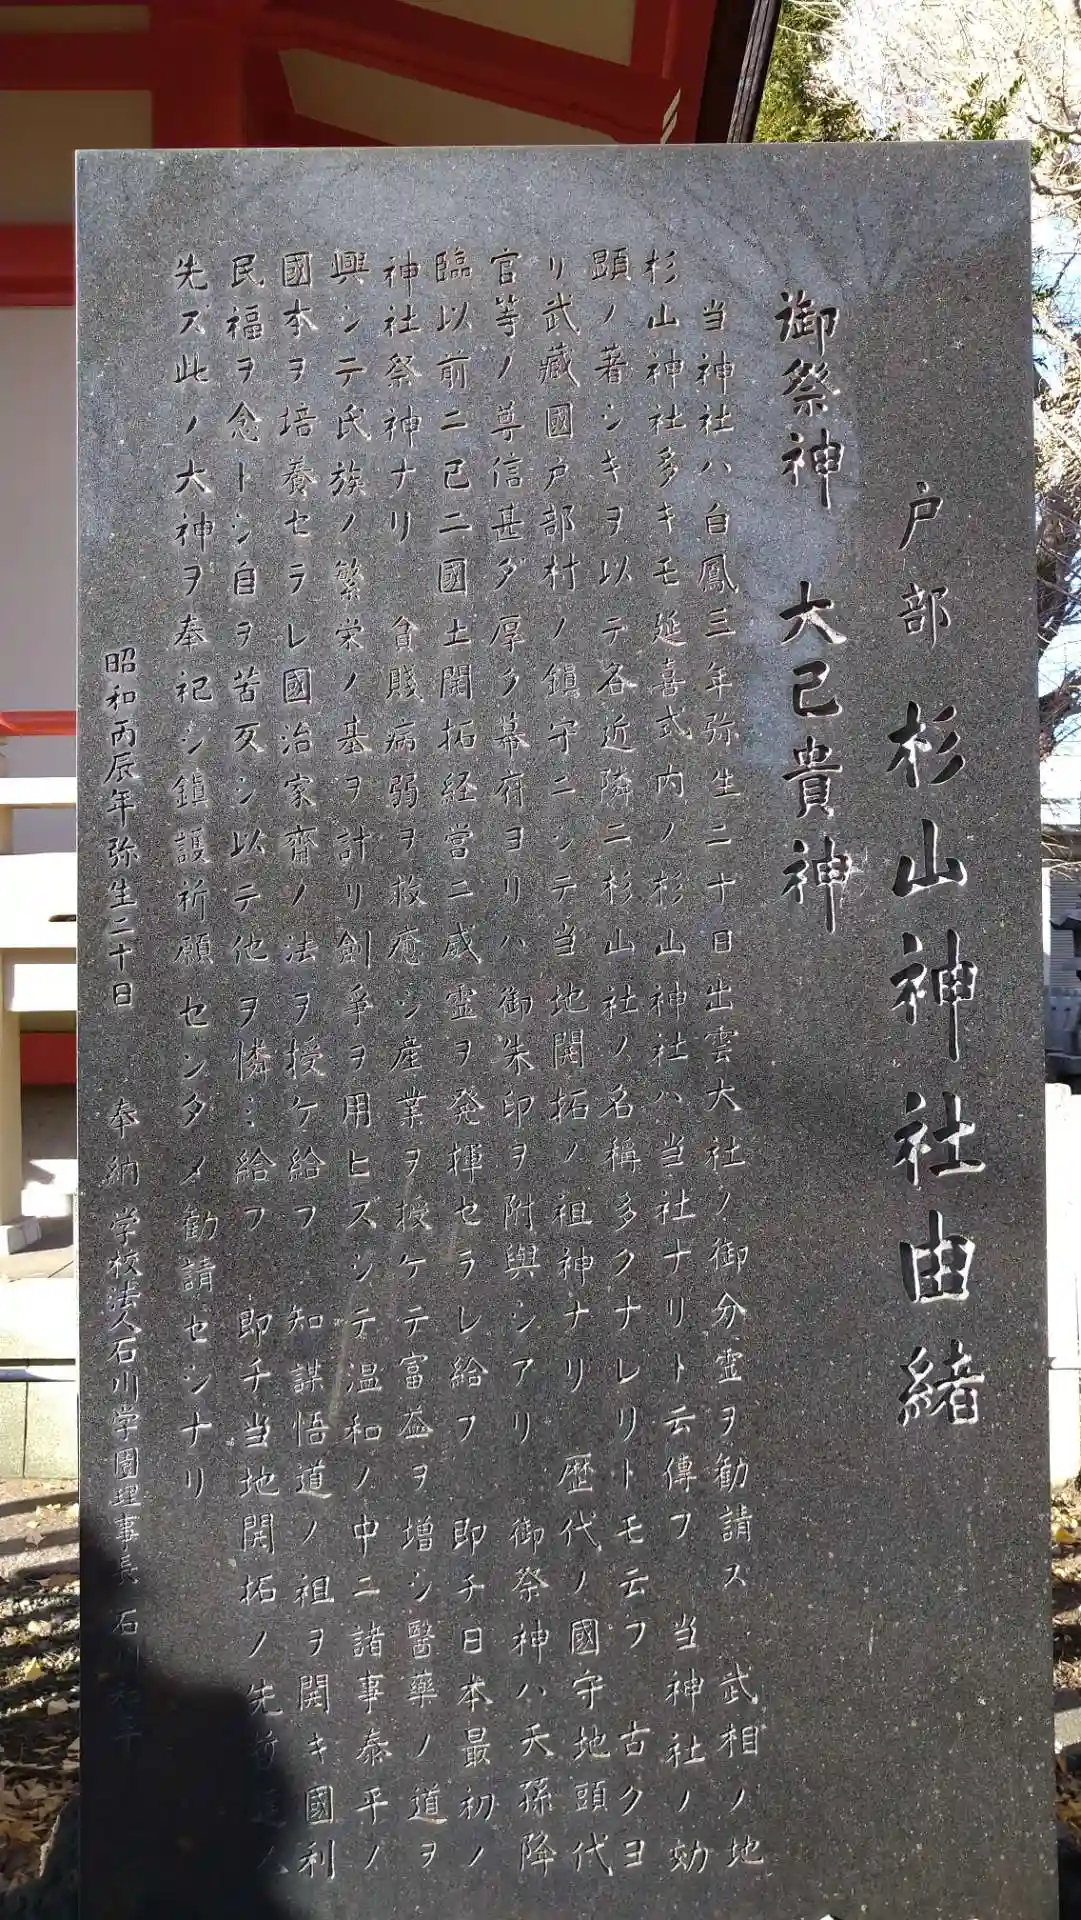 戸部 杉山神社由緒
御祭神 大己貴神
当神社ハ白鳳三年弥生二十日出雲大社ノ御分霊ヲ勧請ス 武相ノ地
杉山神社多キモ延喜式内ノ杉山神社ハ当社ナリト云傳フ 当神社ノ効
顕ノ著シキヲ以テ各近隣ニ杉山社ノ名稱多クナレリトモ云フ 古クヨ
リ武藏國戸部村ノ鎮守ニシテ当地開拓ノ祖神ナリ 歴代ノ國守地頭代
官等ノ尊信甚ダ厚ク幕府ヨリハ御朱印ヲ附與シアリ 御祭神ハ天孫降
臨以前ニ已ニ國土開拓経営ニ威霊ヲ発揮セラレ給フ 即チ日本最初ノ
神社祭神ナリ 貧賤病弱ヲ救癒シ産業ヲ授ケテ富益ヲ増シ醫藥ノ道ヲ
興シテ氏族ノ繁栄ノ基ヲ計リ劍爭ヲ用ヒズシテ温和ノ中ニ諸事泰平ノ
國本ヲ培養セラレ國治家齋ノ法ヲ授ケ給フ 知謀悟道ノ祖ヲ開キ國利
民福ヲ念トシ自ヲ苦亥シ以テ他ヲ憐ミ給フ 即チ当地開拓ノ先 人
先ズ此ノ大神ヲ奉祀シ鎮護祈願センタメ勧請セシナリ
昭和丙辰年弥生二十日 奉納 学校法人石川学園理事長 石川和